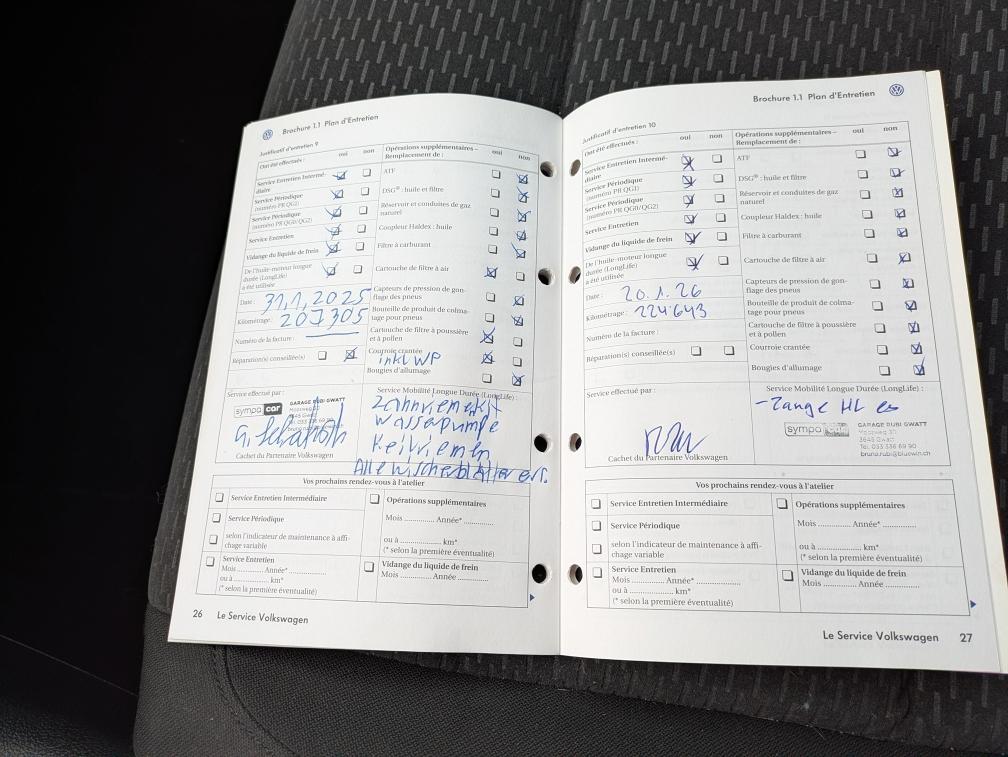 Brochure 1.1 Plan d'Entretien
Justificatif d'entretien 9
Ont été effectués : oui non
Service Entretien Intermé-
diaire
Service Périodique
(numéro PR QG1)
Service Périodique
(numéro PR QG0/QG2)
Service Entretien
Vidange du liquide de frein
De l'huile-moteur longue
durée (LongLife)
a été utilisée
Date : 31.1.2025
Kilométrage : 207305
Numéro de la facture :
Réparation(s) conseillée(s)
Opérations supplémentaires –
Remplacement de : oui non
ATF
DSG® : huile et filtre
Réservoir et conduites de gaz
naturel
Coupleur Haldex : huile
Filtre à carburant
Cartouche de filtre à air
Capteurs de pression de gon-
flage des pneus
Bouteille de produit de colma-
tage pour pneus
Cartouche de filtre à poussière
et à pollen
Courroie crantée
inkl WP
Bougies d'allumage
Service effectué par :
sympa car
GARAGE RUBI GWATT
Moosweg 30
3645 Gwatt
Tel. 033 336 69 90
Cachet du Partenaire Volkswagen
Service Mobilité Longue Durée (LongLife) :
Wasserpumpe
Keilriemen
Alle Wischerblätter ers.
Vos prochains rendez-vous à l'atelier
Service Entretien Intermédiaire
Service Périodique
selon l'indicateur de maintenance à affi-
chage variable
Service Entretien
Mois ............ Année* ...............
ou à ............... km*
(* selon la première éventualité)
Opérations supplémentaires
Mois ............ Année* ............
ou à ............... km*
(* selon la première éventualité)
Vidange du liquide de frein
Mois ............ Année ...............
26 Le Service Volkswagen
Brochure 1.1 Plan d'Entretien
Justificatif d'entretien 10
Ont été effectués : oui non
Service Entretien Intermé-
diaire
Service Périodique
(numéro PR QG1)
Service Périodique
(numéro PR QG0/QG2)
Service Entretien
Vidange du liquide de frein
De l'huile-moteur longue
durée (LongLife)
a été utilisée
Date : 20.1.26
Kilométrage : 224'643
Numéro de la facture :
Réparation(s) conseillée(s)
Opérations supplémentaires –
Remplacement de : oui non
ATF
DSG® : huile et filtre
Réservoir et conduites de gaz
naturel
Coupleur Haldex : huile
Filtre à carburant
Cartouche de filtre à air
Capteurs de pression de gon-
flage des pneus
Bouteille de produit de colma-
tage pour pneus
Cartouche de filtre à poussière
et à pollen
Courroie crantée
Bougies d'allumage
Service effectué par :
Cachet du Partenaire Volkswagen
Service Mobilité Longue Durée (LongLife) :
- Zange HL
sympa car
GARAGE RUBI GWATT
Moosweg 30
3645 Gwatt
Tel. 033 336 69 90
bruno.rubi@bluewin.ch
Vos prochains rendez-vous à l'atelier
Service Entretien Intermédiaire
Service Périodique
selon l'indicateur de maintenance à affi-
chage variable
Service Entretien
Mois ............ Année* ...............
ou à ............... km*
(* selon la première éventualité)
Opérations supplémentaires
Mois ............ Année* ...............
ou à ............... km*
(* selon la première éventualité)
Vidange du liquide de frein
Mois ............ Année ...............
Le Service Volkswagen 27